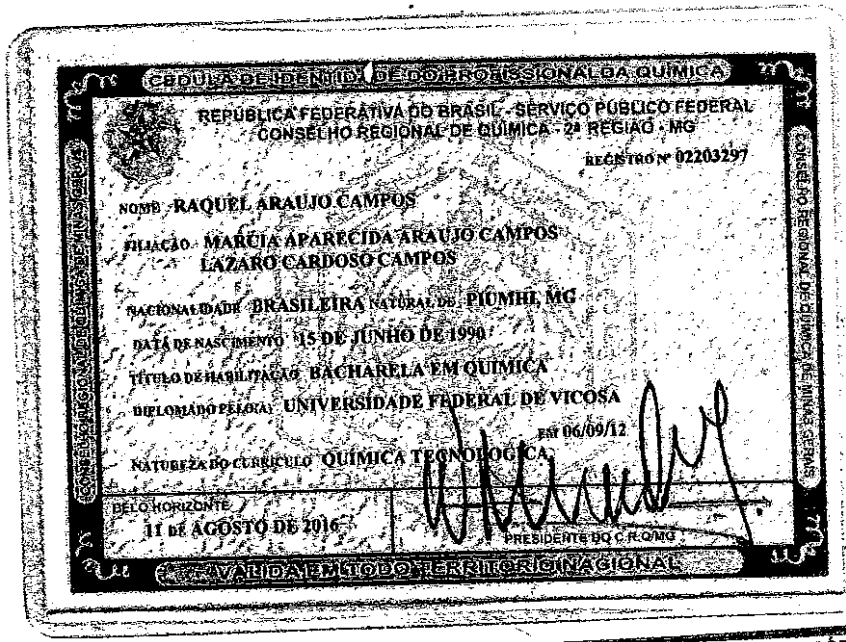 CEDULA DE IDENTIDADE DO PROFISSIONAL DA QUIMICA
REPÚBLICA FEDERATIVA DO BRASIL - SERVIÇO PÚBLICO FEDERAL
CONSELHO REGIONAL DE QUÍMICA - 2ª REGIÃO - MG
REGISTRO Nº 02203297
NOME RAQUEL ARAUJO CAMPOS
FILIAÇÃO MARCIA APARECIDA ARAUJO CAMPOS
LAZARO CARDOSO CAMPOS
NACIONALIDADE BRASILEIRA NATURAL DE PIUMHI, MG
DATA DE NASCIMENTO 15 DE JUNHO DE 1990
TÍTULO DE HABILITAÇÃO BACHARELA EM QUIMICA
DIPLOMADO PELO(A) UNIVERSIDADE FEDERAL DE VICOSA
EM 06/09/12
NATUREZA DO CURRÍCULO QUÍMICA TECNOLOGICA
BELO HORIZONTE
11 DE AGOSTO DE 2016
PRESIDENTE DO C.R.Q/MG
VALIDA EM TODO TERRITORIO NACIONAL
CONSELHO REGIONAL DE QUIMICA DE MINAS GERAIS
CONSELHO REGIONAL DE QUIMICA DE MINAS GERAIS